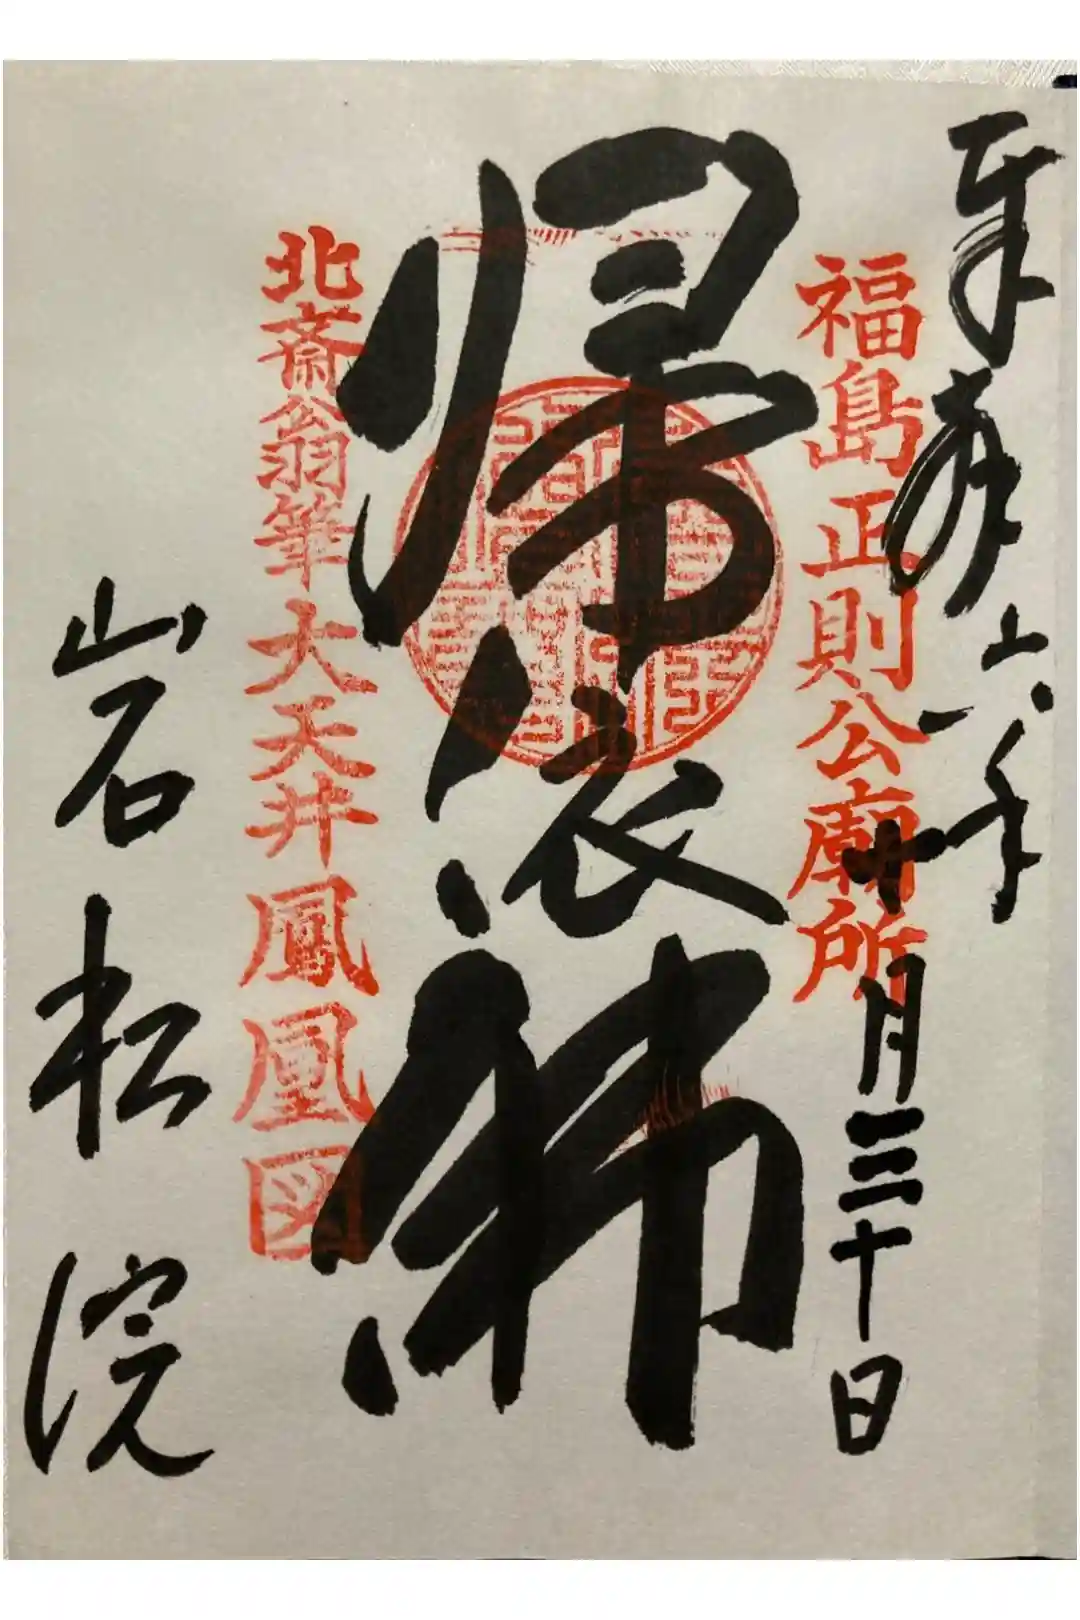 奉拝 六年
十月三十日
福島正則公廟所
帰依佛
北斎翁筆大天井鳳凰図
岩松院